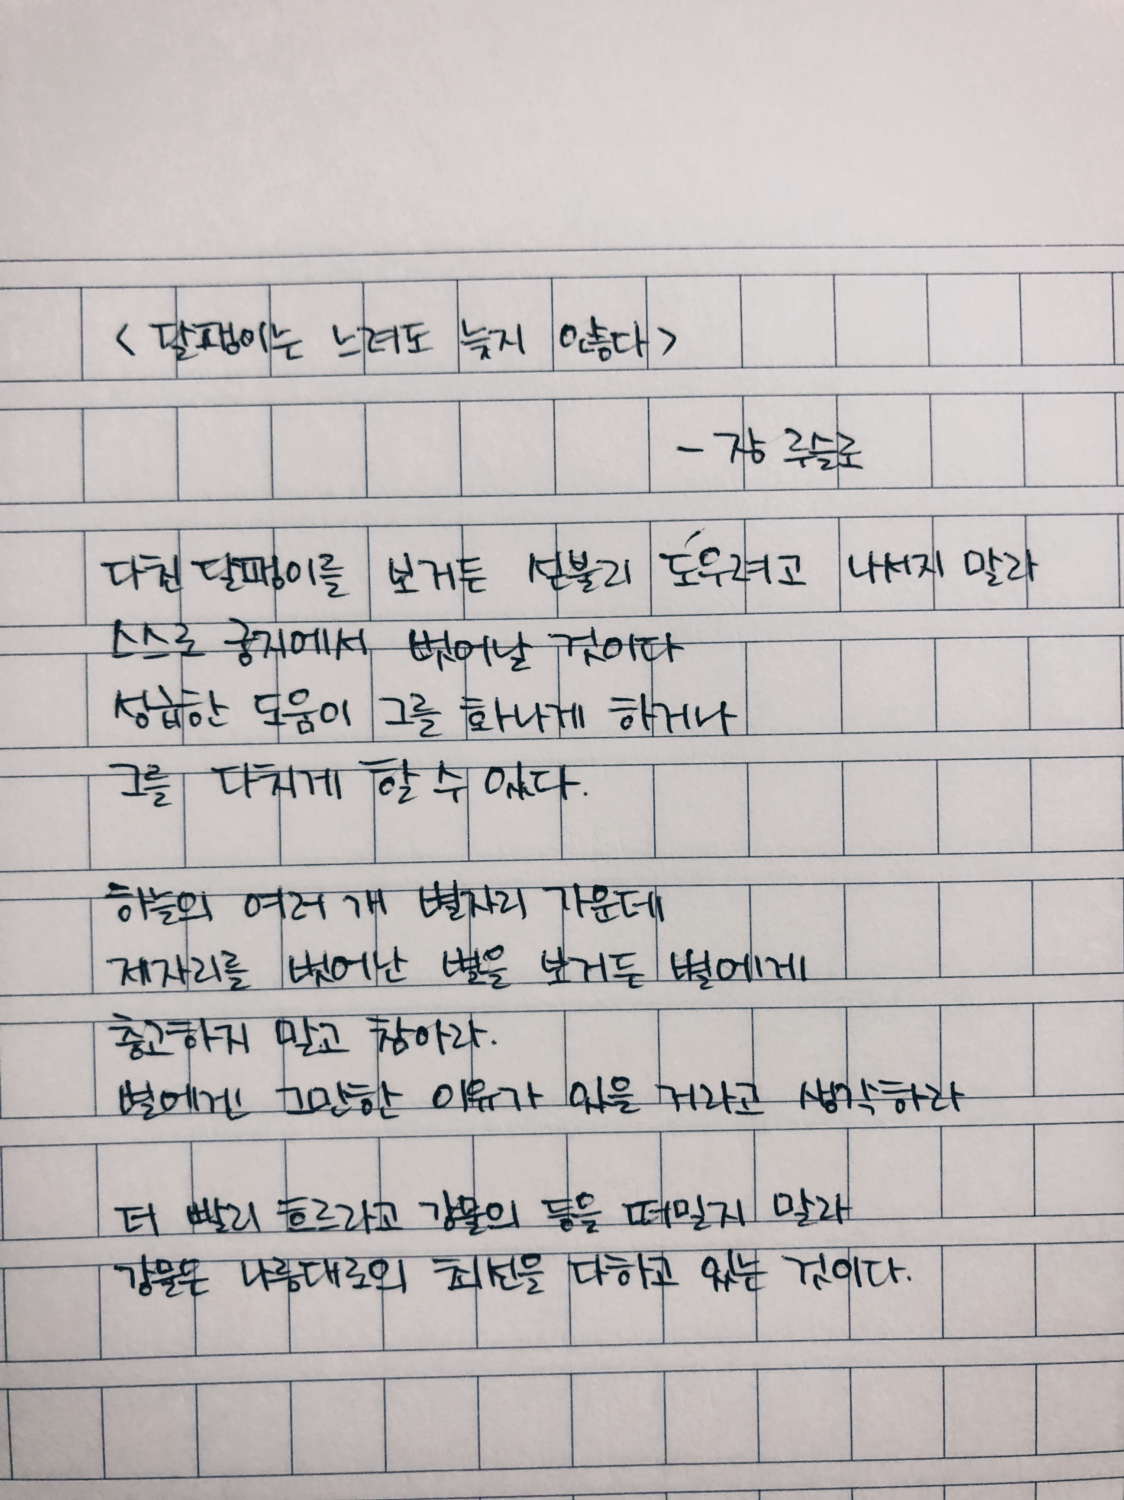 <달팽이는 느려도 늦지 않다>
- 쟝 루슬로
다친 달팽이를 보거든 섣불리 도우려고 나서지 말라
스스로 궁지에서 벗어날 것이다
성급한 도움이 그를 화나게 하거나
그를 다치게 할 수 있다.
하늘의 여러 개 별자리 가운데
제자리를 벗어난 별을 보거든 별에게
충고하지 말고 참아라.
별에겐 그만한 이유가 있을 거라고 생각하라
더 빨리 흐르라고 강물의 등을 떠밀지 말라
강물은 나름대로의 최선을 다하고 있는 것이다.